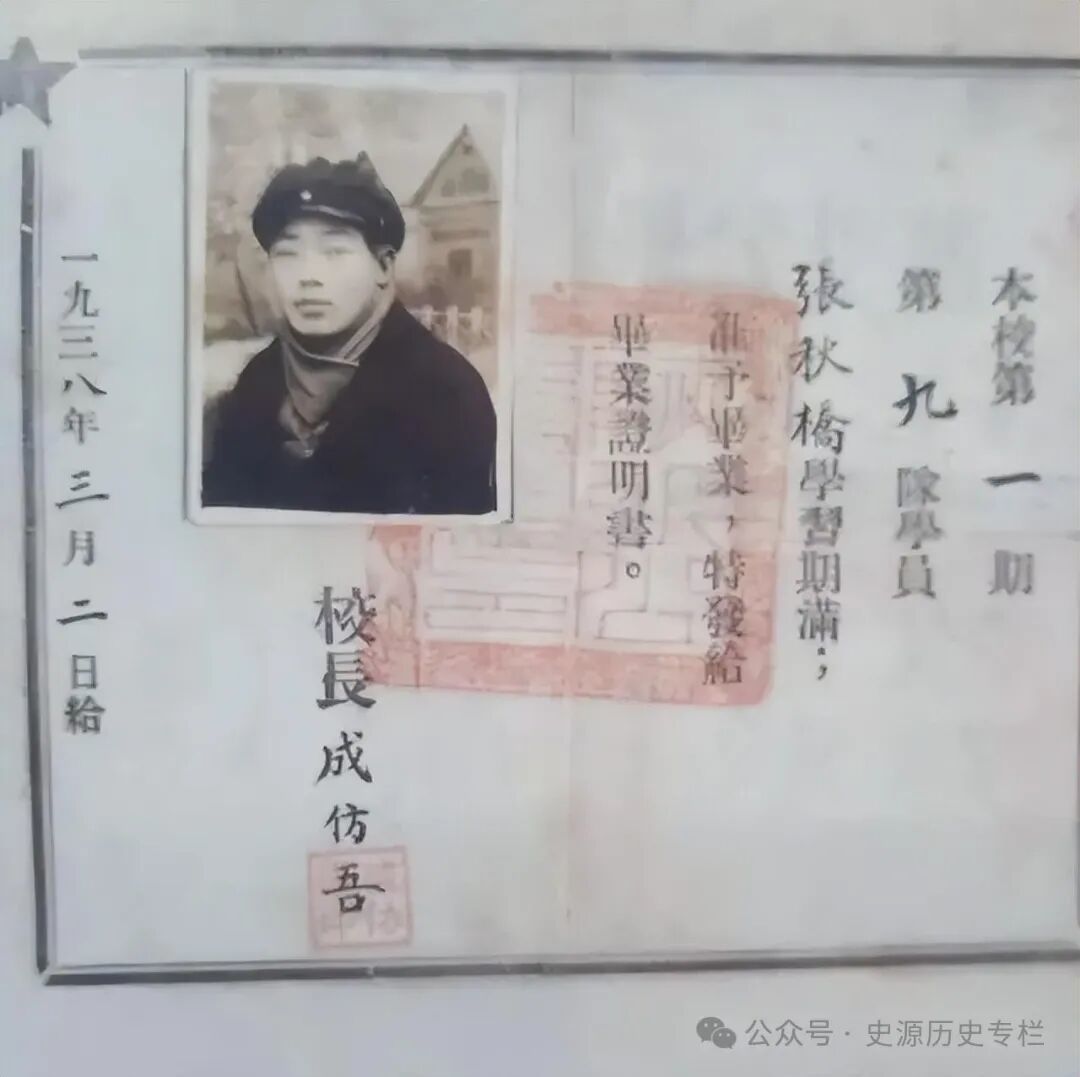 本校第一期
第九隊學員
張秋橋學習期滿，
准予畢業，特發給
畢業證明書。
校長成仿吾
一九三八年三月二日給
公众号 · 史源历史专栏